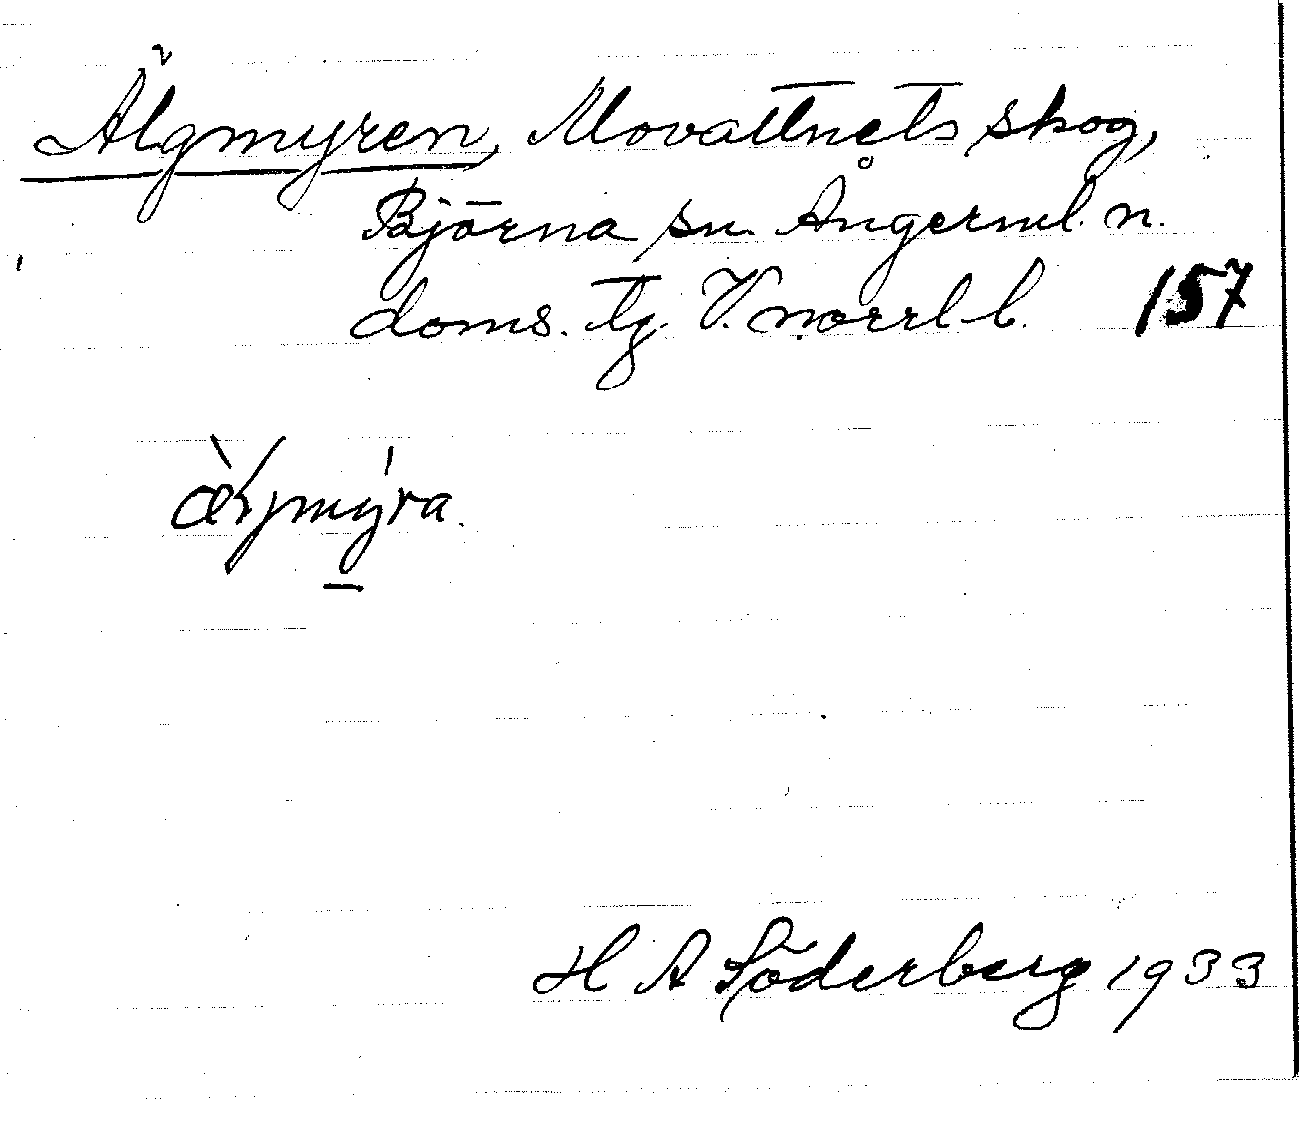 Älgmyren, Movattnets skog,
Björna sn. Ångerml. n.
doms. tg. V. norrl. l. 157
H A Söderberg 1933